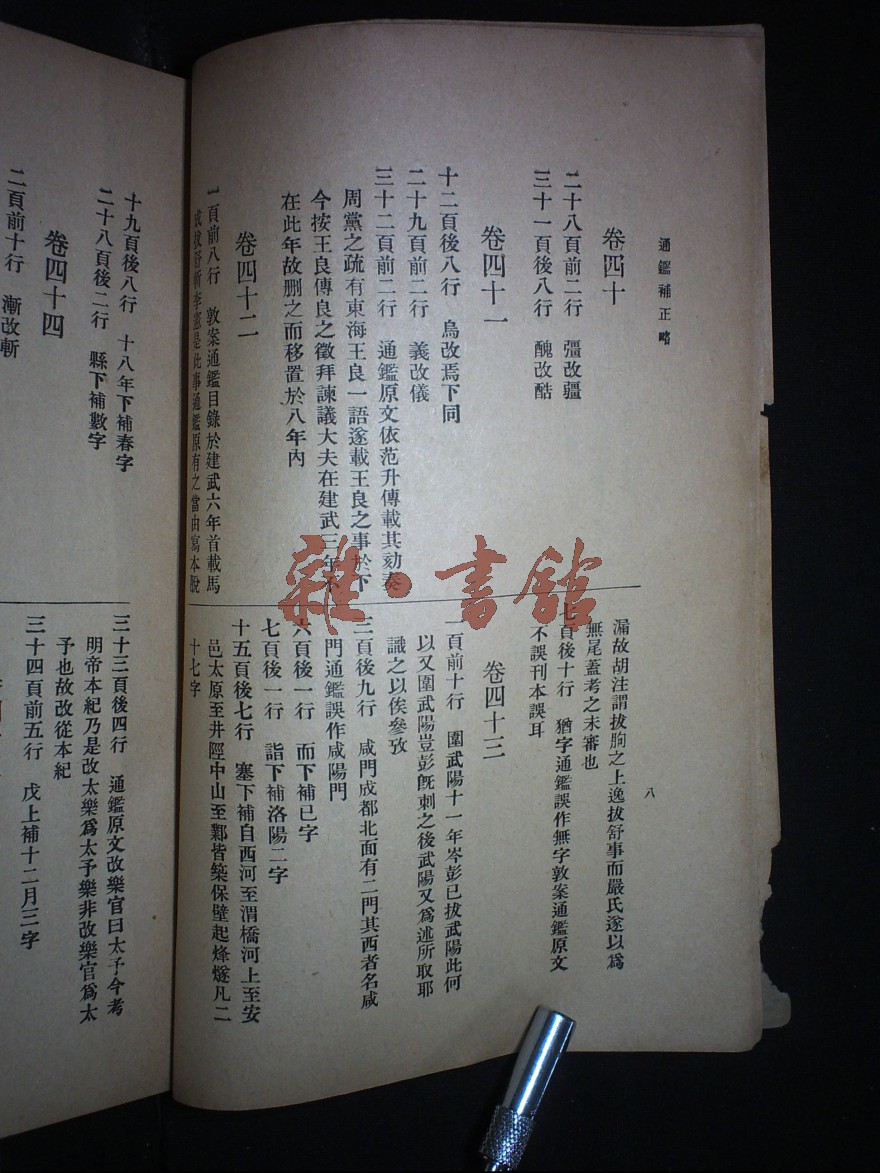 通鑑補正略
卷四十
二十八頁前二行 彊改疆
三十一頁後八行 醜改酷
卷四十一
十二頁後八行 烏改焉下同
二十九頁前二行 義改儀
三十二頁前二行 通鑑原文依范升傳載其劾奏
周黨之疏有東海王良一語遂載王良之事於下
今按王良傳良之徵拜諫議大夫在建武三年不
在此年故删之而移置於八年內
卷四十二
一頁前八行 敦案通鑑目錄於建武六年首載馬
成拔舒斬李憲是此事通鑑原有之當由寫本脫
漏故胡注謂拔朐之上逸拔舒事而嚴氏遂以爲
無尾蓋考之未審也
七頁後十行 猶字通鑑誤作無字敦案通鑑原文
不誤刊本誤耳
卷四十三
一頁前十行 圍武陽十一年岑彭已拔武陽此何
以又圍武陽豈彭旣刺之後武陽又爲述所取耶
識之以俟參攷
三頁後九行 咸門成都北面有二門其西者名咸
門通鑑誤作咸陽門
六頁後一行 而下補已字
七頁後一行 詣下補洛陽二字
十五頁後七行 塞下補自西河至渭橋河上至安
邑太原至井陘中山至鄴皆築保壁起烽燧凡二
十七字
八
十九頁後八行 十八年下補春字
二十八頁後二行 縣下補數字
卷四十四
二頁前十行 漸改斬
三十三頁後四行 通鑑原文改樂官曰太予今考
明帝本紀乃是改太樂爲太予樂非改樂官爲太
予也故改從本紀
三十四頁前五行 戊上補十二月三字
雜·書館